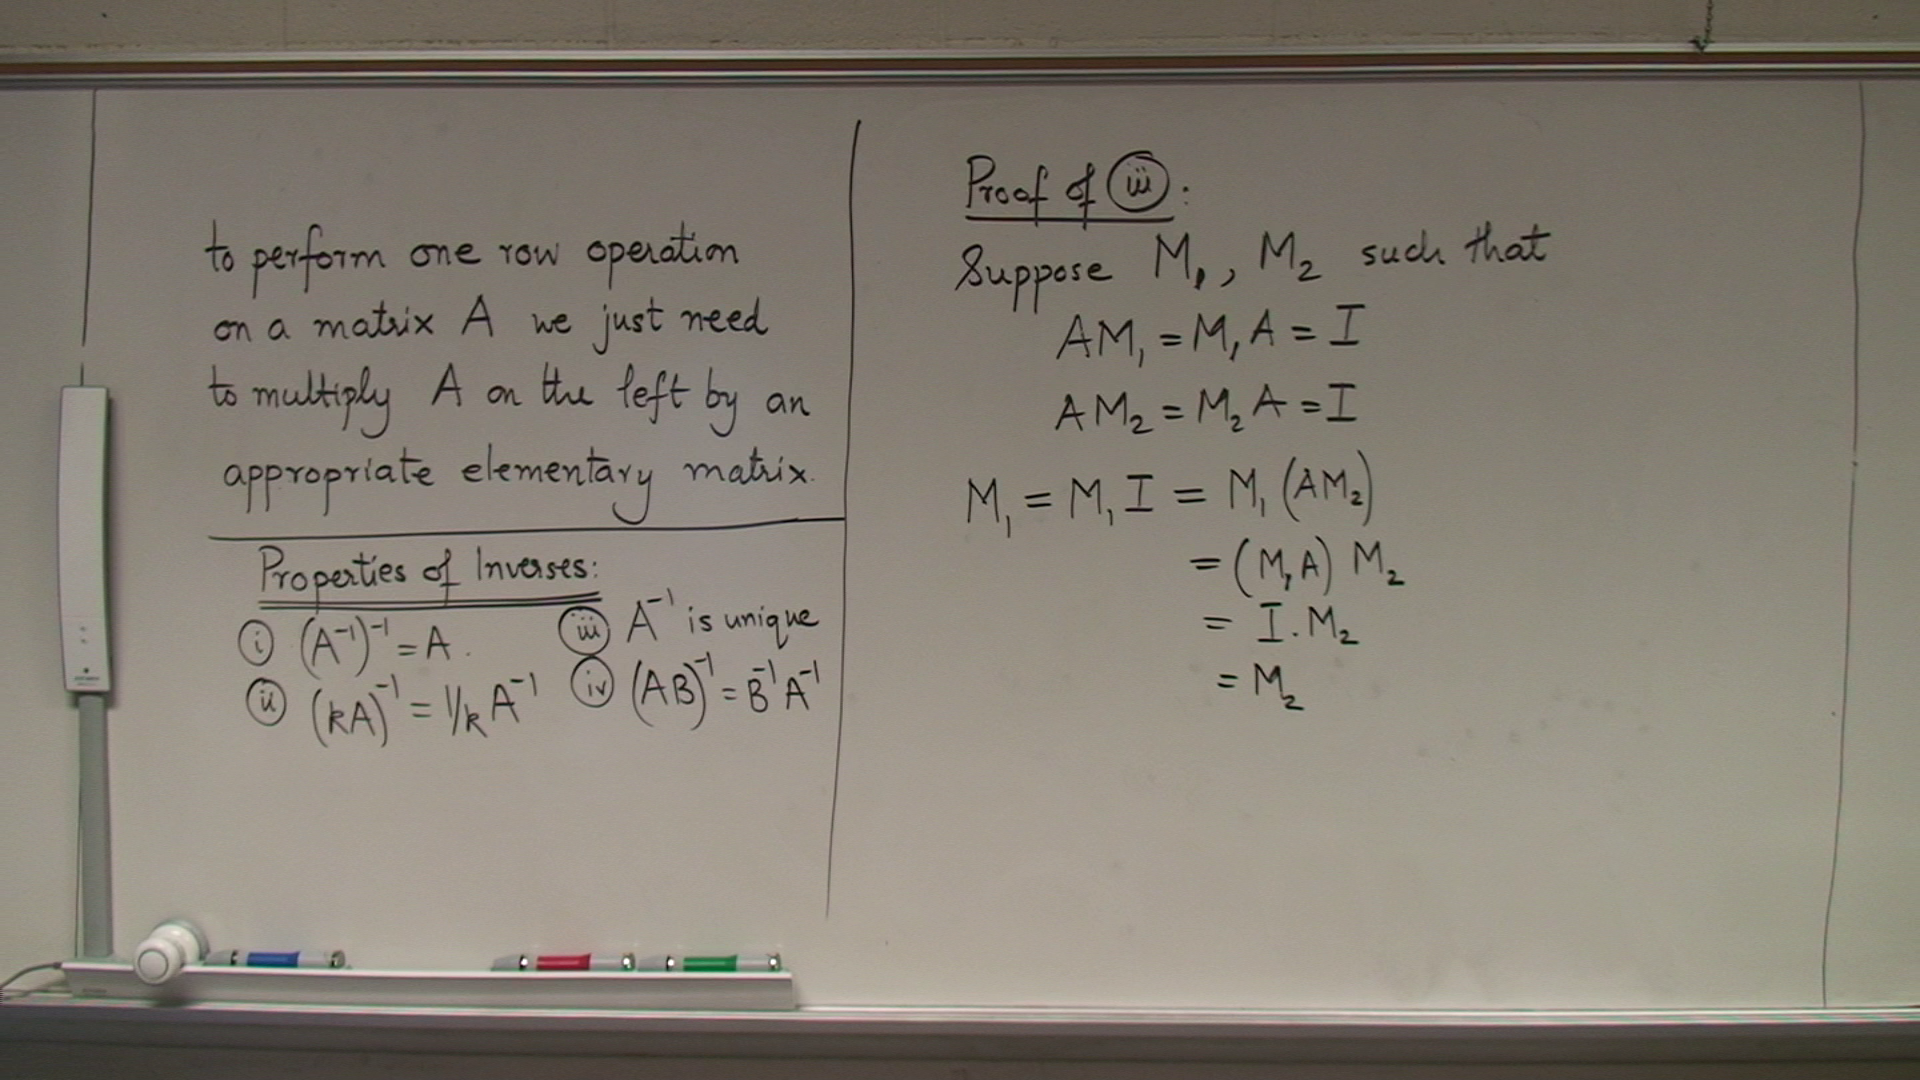 to perform one row operation
on a matrix A we just need
to multiply A on the left by an
appropriate elementary matrix.
Properties of Inverses:
(i) (A⁻¹)⁻¹ = A.
(ii) (kA)⁻¹ = 1/k A⁻¹
(iii) A⁻¹ is unique
(iv) (AB)⁻¹ = B⁻¹A⁻¹
Proof of (iii):
Suppose M₁, M₂ such that
AM₁ = M₁A = I
AM₂ = M₂A = I
M₁ = M₁I = M₁(AM₂)
= (M₁A) M₂
= I.M₂
= M₂